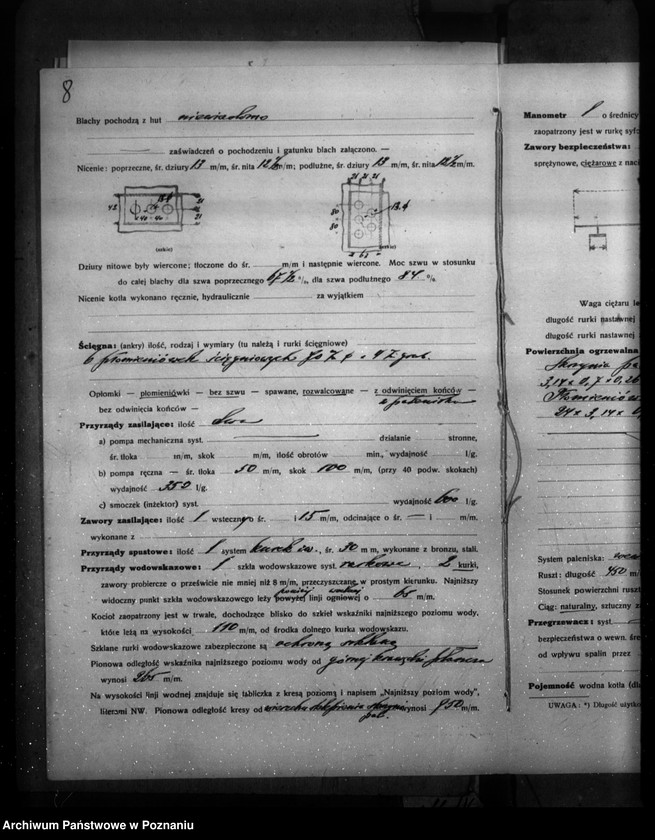 8
Blachy pochodzą z hut niewiadomo
zaświadczeń o pochodzeniu i gatunku blach załączono. —
Nicenie: poprzeczne, śr. dziury 13 m/m, śr. nita 12½ m/m; podłużne, śr. dziury 13 m/m, śr. nita 12½ m/m.
(szkic)
(szkic)
Dziury nitowe były wiercone; tłoczone do śr. m/m i następnie wiercone. Moc szwu w stosunku
do całej blachy dla szwa poprzecznego 67½ %, dla szwa podłużnego 84 %
Nicenie kotła wykonano ręcznie, hydraulicznie za wyjątkiem
Ścięgna: (ankry) ilość, rodzaj i wymiary (tu należą i rurki ścięgniowe)
6 płomieniówek ścięgniowych
Opłomki — płomieniówki — bez szwu — spawane, rozwalcowane — z odwinięciem końców —
bez odwinięcia końców —
Przyrządy zasilające: ilość dwa
a) pompa mechaniczna syst. działanie stronne,
śr. tłoka m/m, skok m/m, ilość obrotów min., wydajność l/g.
b) pompa ręczna — śr. tłoka 50 m/m, skok 100 m/m, (przy 40 podw. skokach)
wydajność 350 l/g.
c) smoczek (inżektor) syst. wydajność 600 l/g.
Zawory zasilające: ilość 1 wsteczny o śr. i 15 m/m, odcinające o śr. — i m/m.
wykonane z
Przyrządy spustowe: ilość 1 system kurek śr. 30 m m, wykonane z bronzu, stali.
Przyrządy wodowskazowe: 1 szkła wodowskazowe syst. 2 kurki,
zawory probiercze o prześwicie nie mniej niż 8 m/m, przeczyszczane w prostym kierunku. Najniższy
widoczny punkt szkła wodowskazowego leży powyżej linji ogniowej o 65 m/m.
Kocioł zaopatrzony jest w trwałe, dochodzące blisko do szkieł wskaźniki najniższego poziomu wody,
które leżą na wysokości 110 m/m, od środka dolnego kurka wodowskazu.
Szklane rurki wodowskazowe zabezpieczone są ochroną szklaną
Pionowa odległość wskaźnika najniższego poziomu wody od górnej krawędzi płaszcza
wynosi 265 m/m.
Na wysokości linji wodnej znajduje się tabliczka z kresą poziomą i napisem „Najniższy poziom wody",
literami NW. Pionowa odległość kresy od wierzchu wynosi 950 m/m.
Manometr 1 o średnicy
zaopatrzony jest w rurkę syfo
Zawory bezpieczeństwa:
sprężynowe, ciężarowe z naci
Waga ciężaru le
długość rurki nastawnej
długość rurki nastawnej
Powierzchnia ogrzewalna
Skrzynia
3,14 x 0,7 x 0,26
Płomieniów
24 x 3,14 x 0,
System paleniska:
Ruszt: długość 450 m/
Stosunek powierzchni ruszt
Ciąg: naturalny, sztuczny z
Przegrzewacz: syst.
bezpieczeństwa o wewn. śre
od wpływu spalin przez
Pojemność wodna kotła (dl
UWAGA: *) Długość użytko
Archiwum Państwowe w Poznaniu